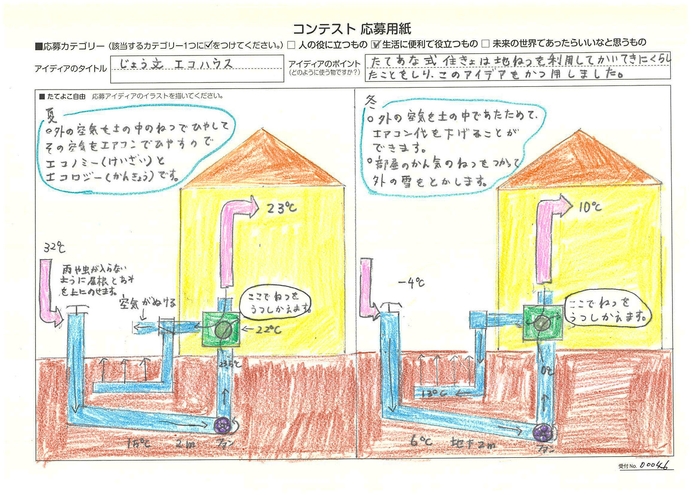 コンテスト 応募用紙
■応募カテゴリー（該当するカテゴリー1つに☑をつけてください。） □ 人の役に立つもの ☑ 生活に便利で役立つもの □ 未来の世界であったらいいなと思うもの
アイディアのタイトル じょう文 エコハウス
アイディアのポイント
（どのように使う物ですか？）
たてあな式 住きょは地ねつを利用してかいてきにくらし
たことをしり、このアイデアをかつ用しました。
■たてよこ自由 応募アイディアのイラストを描いてください。
夏
○外の空気を土の中のねつでひやして
その空気をエアコンでひやすので
エコノミー(けいざい)と
エコロジー(かんきょう)です。
23℃
32℃
雨や虫が入らない
ように屋根とあみ
を上にのせます。
空気がぬける
ここでねつを
うつしかえます。
22℃
15℃ 2m ファン
冬
○外の空気を土の中であたためて、
エアコン代を下げることが
できます。
○部屋のかん気のねつをつかって
外の雪をとかします。
10℃
-4℃
ここでねつを
うつしかえます。
0℃
13℃
6℃ 地下2m ファン
受付No. 00046